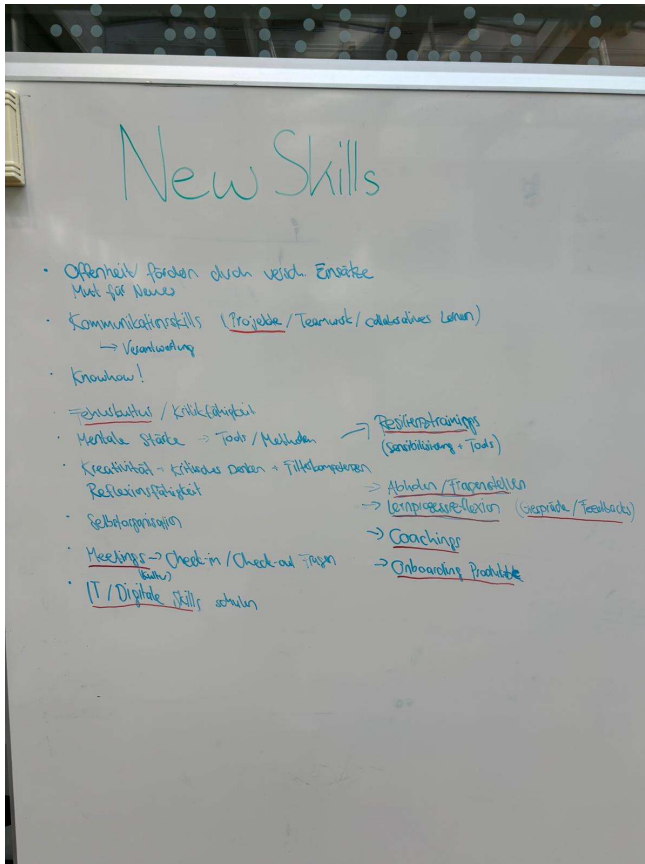 New Skills
• Offenheit fördern durch versch. Einsätze
Mut für Neues
• Kommunikationsskills (Projekte / Teamwork / collaboratives Lernen)
→ Verantwortung
• Knowhow!
Fehlerkultur / Kritikfähigkeit
• Mentale Stärke → Tools / Methoden → Resilienztrainings
(Sensibilisierung + Tools)
• Kreativität - Kritisches Denken + Filterkompetenzen
Reflexionsfähigkeit
→ Abholen / Fragenstellen
→ Lernprozessreflexion (Gespräche / Feedbacks)
• Selbstorganisation
→ Coachings
• Meetings → Check-in / Check-out Fragen
(Kultur)
→ Onboarding Produkte
• IT / Digitale Skills schulen